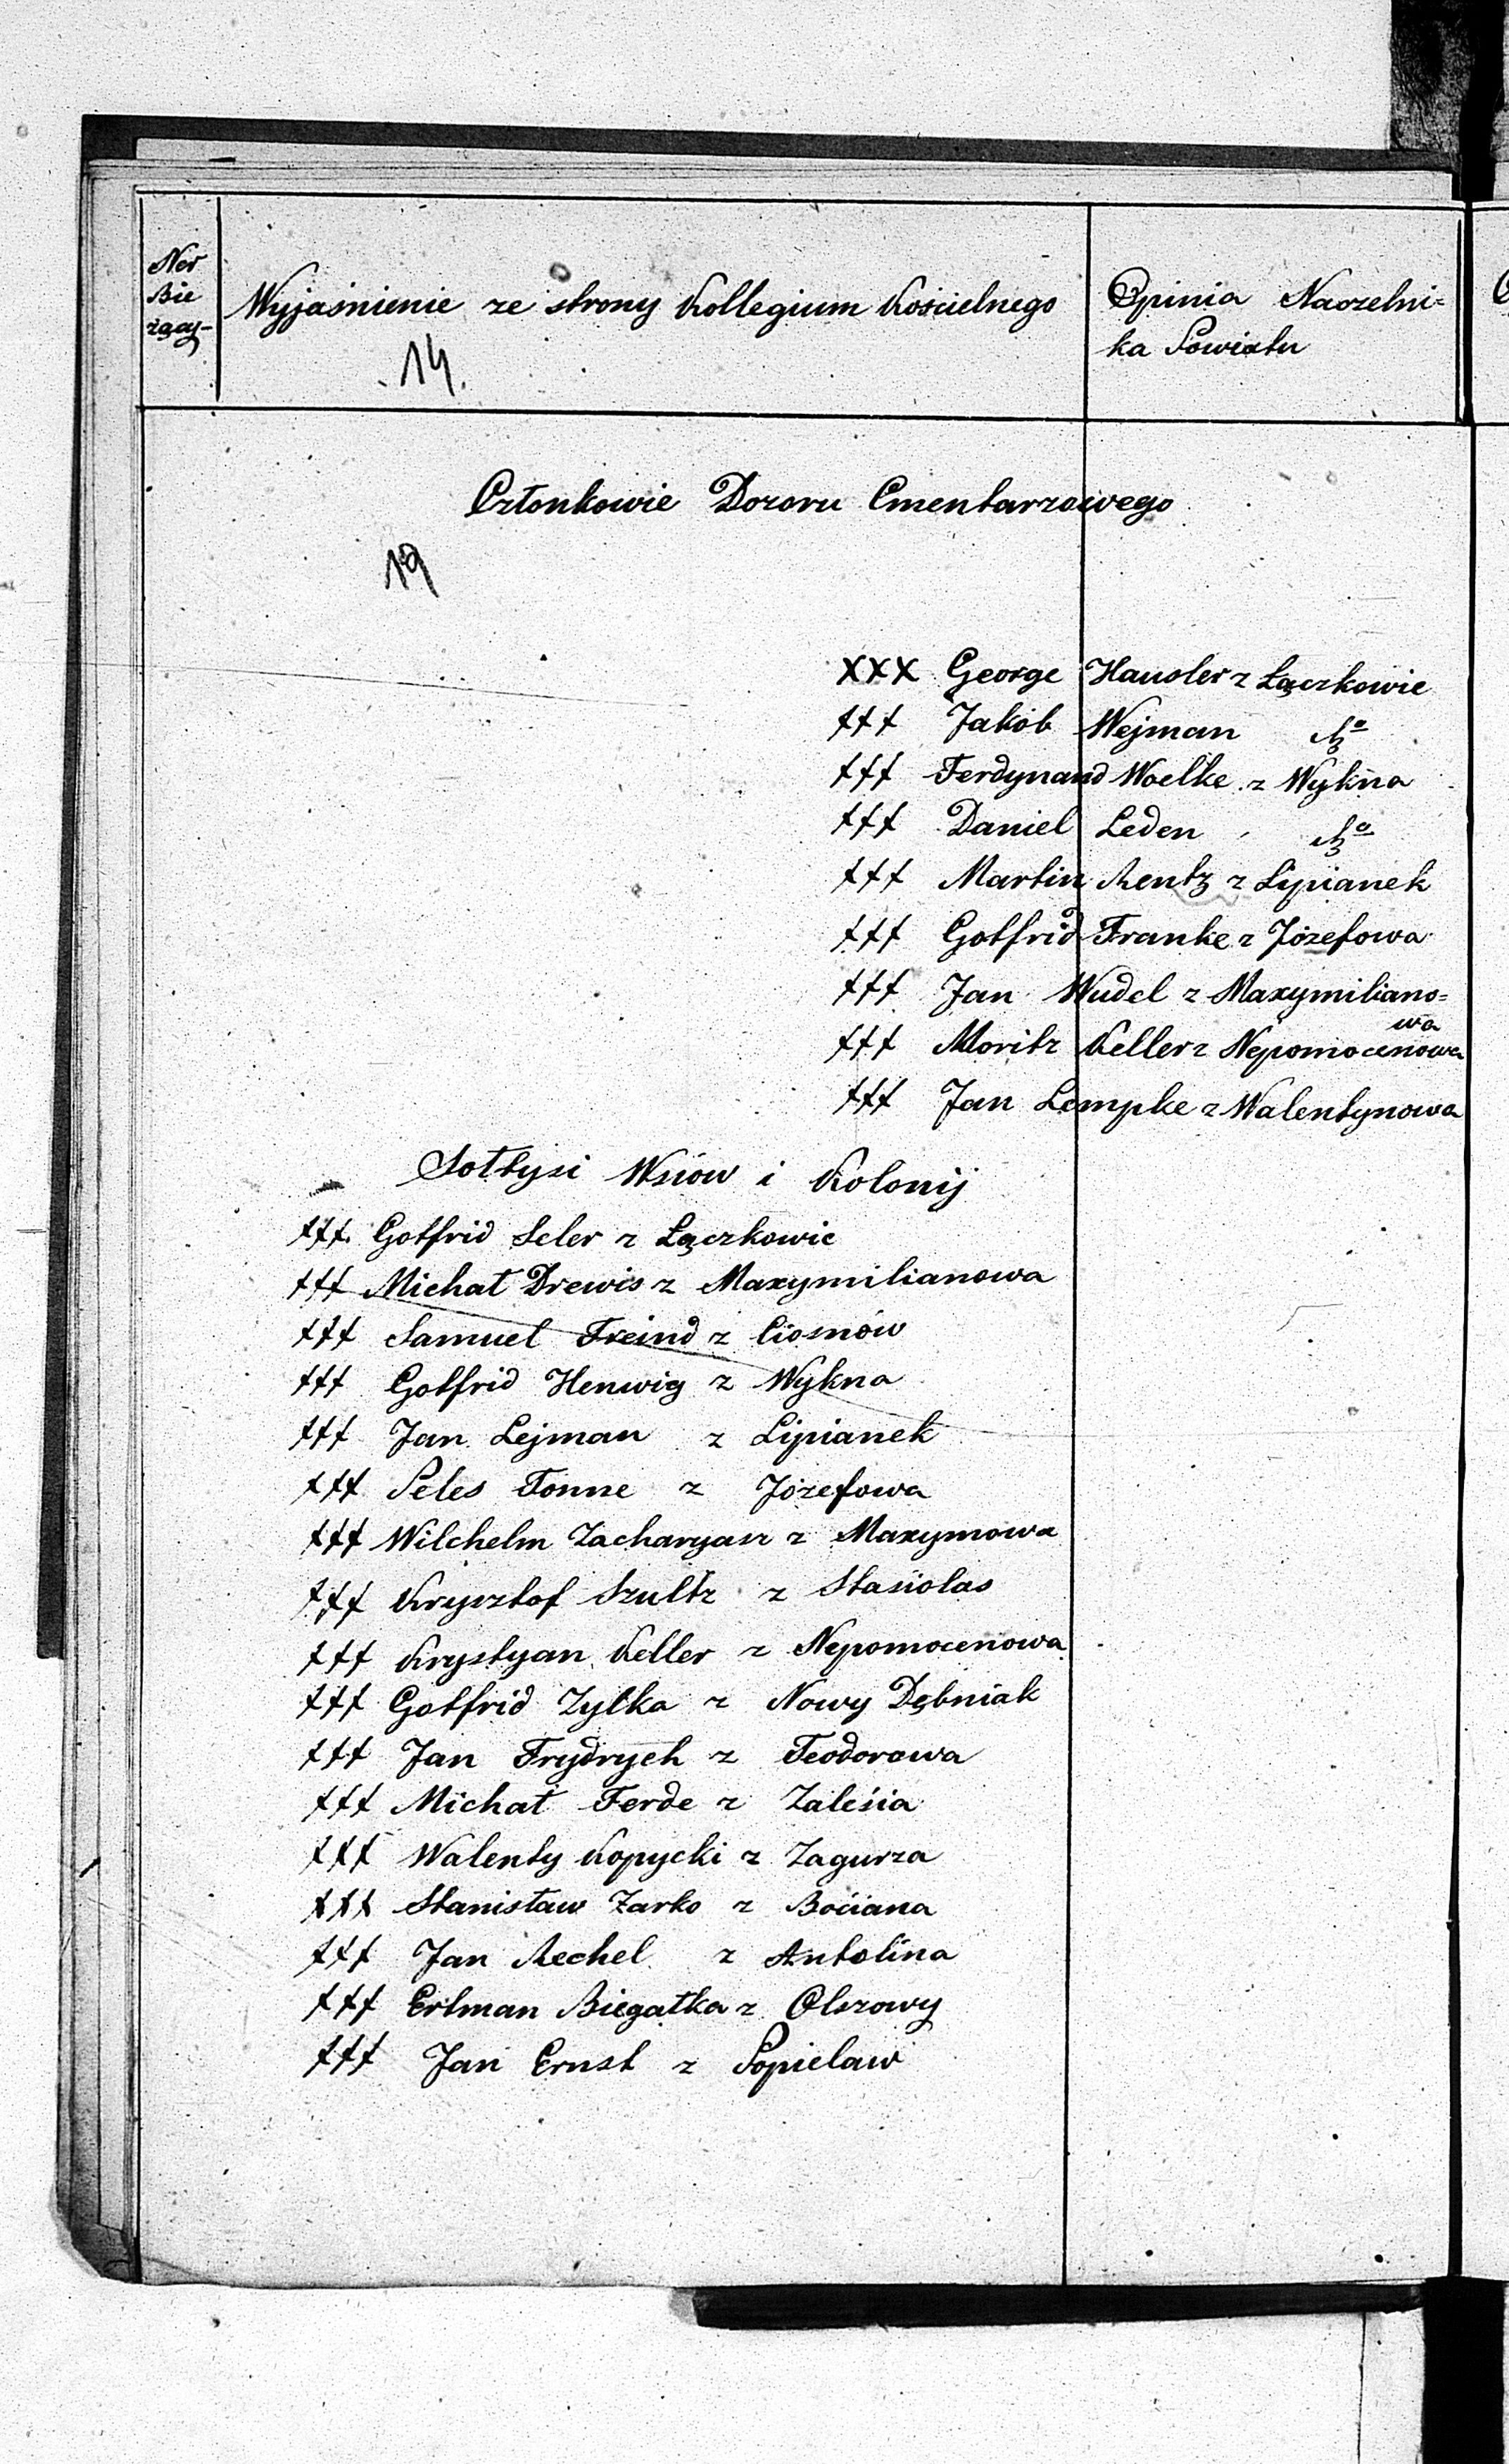 Ner
Bie
żący-
Wyjaśnienie ze strony Kollegium Kościelnego
14.
Opinia Naczelni=
ka Powiatu
Członkowie Dozoru Cmentarzowego
19
XXX George Hausler z Łączkowic
+++ Jakób Wejman
+++ Ferdynand Woelke z Wykna
+++ Daniel Leden
+++ Martin Rentz z Lipianek
+++ Gotfrid Franke z Józefowa
+++ Jan Wudel z Maxymiliano=
wa
+++ Moritz Keller z Nepomocenowa
+++ Jan Lempke z Walentynowa
Sołtysi Wsiów i Kolonij
+++ Gotfrid Seler z Łączkowic
+++ Michał Drewis z Maxymilianowa
+++ Samuel Freind z Ciosnów
+++ Gotfrid Henwig z Wykna
+++ Jan Lejman z Lipianek
+++ Peles Tonne z Józefowa
+++ Wilchelm Zacharyasz z Maxymowa
+++ Krysztof Szultz z Stasiolas
+++ Krystyan Keller z Nepomocenowa
+++ Gotfrid Zylka z Nowy Dębniak
+++ Jan Frydrych z Teodorowa
+++ Michał Ferde z Zaleśia
+++ Walenty Kopycki z Zagurza
+++ Stanisław Zarko z Bociana
+++ Jan Rechel z Antolina
+++ Ertman Biegałka z Olszowy
+++ Jan Ernst z Popielaw